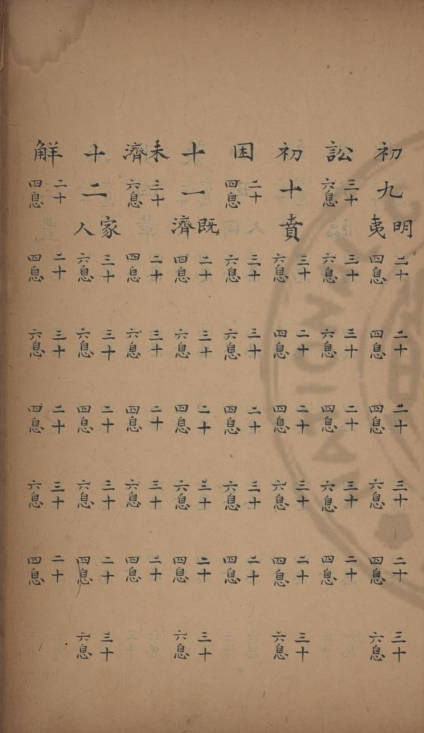 初九明夷 二十四息 二十四息 二十四息 三十六息 二十四息 三十六息
訟 三十六息 三十六息 三十六息 二十四息 三十六息 二十四息
初十賁 三十六息 二十四息 二十四息 三十六息 二十四息 三十六息
困 二十四息 三十六息 三十六息 二十四息 三十六息 二十四息
十一既濟 二十四息 三十六息 二十四息 三十六息 二十四息 三十六息
未濟 三十六息 二十四息 三十六息 二十四息 三十六息 二十四息
十二家人 三十六息 三十六息 二十四息 三十六息 二十四息 三十六息
解 二十四息 二十四息 三十六息 二十四息 三十六息 二十四息